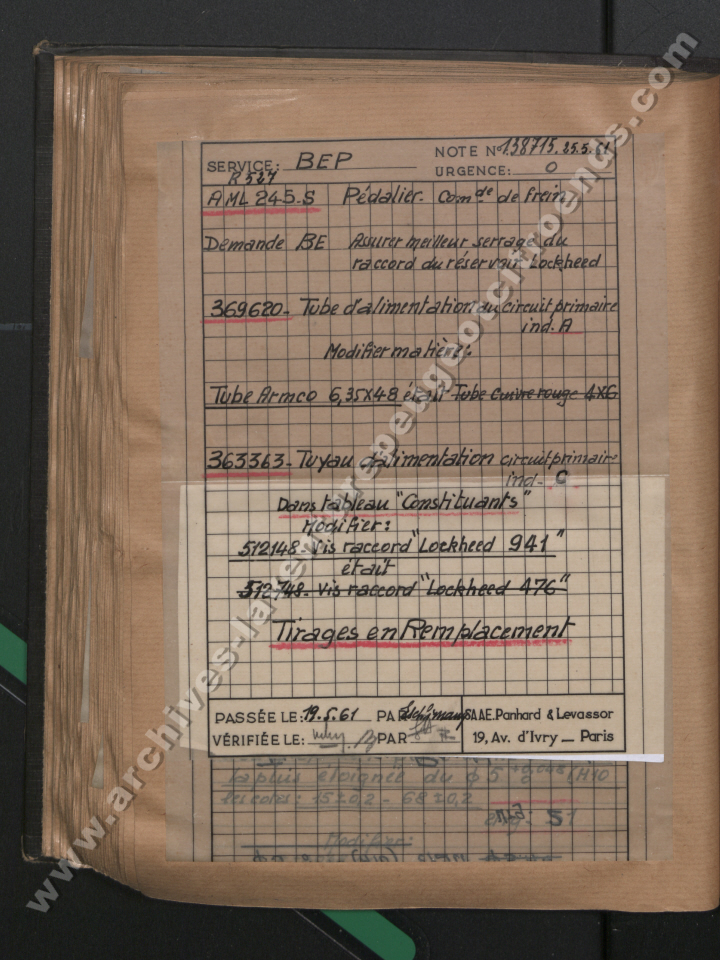 SERVICE: BEP NOTE N° 138715. 25.5.61
URGENCE: 0
R 527
AML 245.S Pédalier. Comde de frein
Demande BE Assurer meilleur serrage du
raccord du réservoir Lockheed
369620- Tube d'alimentation du circuit primaire
ind. A
Modifier matière:
Tube Armco 6,35x48 était Tube cuivre rouge 4x6
363363- Tuyau d'alimentation circuit primaire
ind- C
Dans tableau "Constituants"
Modifier:
512148. Vis raccord "Lockheed 941"
était
512748. Vis raccord "Lockheed 476"
Tirages en Remplacement
PASSÉE LE: 19.5.61 PAR
VÉRIFIÉE LE: PAR
S.A.A.E. Panhard & Levassor
19, Av. d'Ivry _ Paris
la plus éloignée du φ 5 H10
les cotes: 15±0,2 - 68±0,2
Modifier:
www.archives-laventurepeugeotcitroends.com